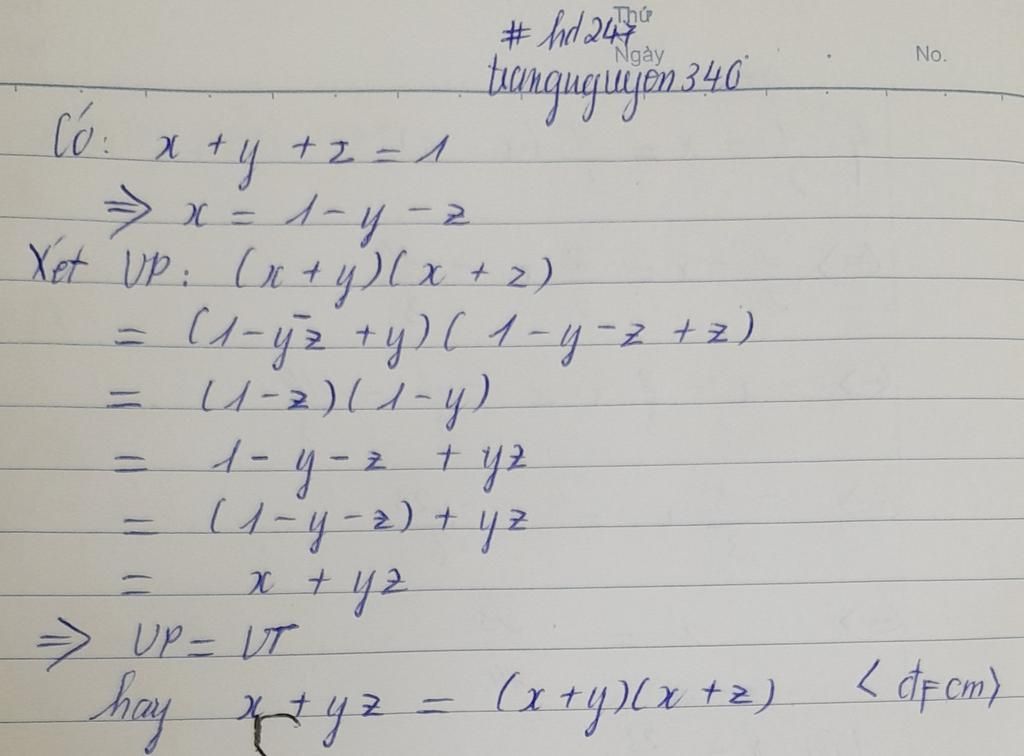 Thứ
# hd247
Ngày
No.
trangnguyen340
Có: x + y + z = 1
⇒ x = 1 - y - z
Xét VP: (x + y)(x + z)
= (1 - y - z + y)(1 - y - z + z)
= (1 - z)(1 - y)
= 1 - y - z + yz
= (1 - y - z) + yz
= x + yz
⇒ VP = VT
hay x + yz = (x + y)(x + z) <đpcm>